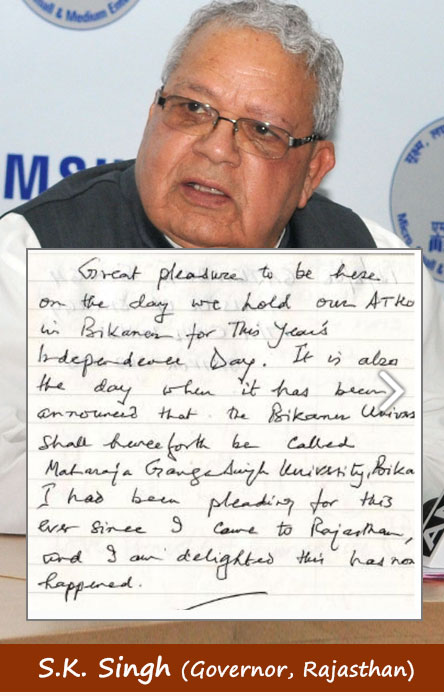 & Medium
MSM
Great pleasure to be here
on the day we hold our AT Ho
in Bikaner for This Year's
Independence Day. It is also
the day when it has been
announced that the Bikaner Univers
shall henceforth be called
Maharaja Ganga Singh University, Bika
I had been pleading for this
ever since I came to Rajasthan,
and I am delighted this has now
happened.
S.K. Singh (Governor, Rajasthan)